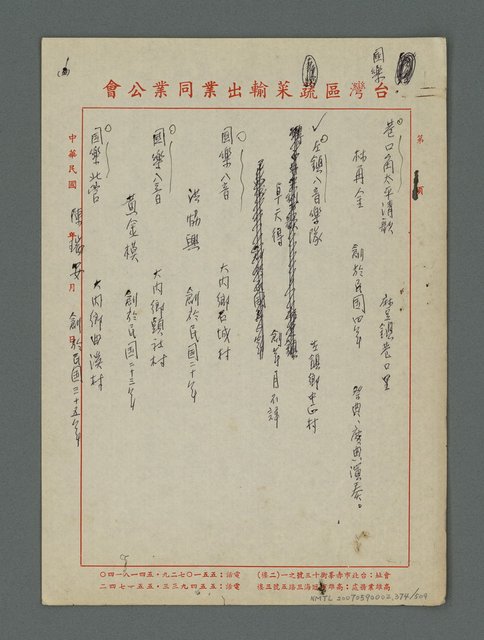 國樂
台灣區蔬菜輸出業同業公會
第 頁
巷口角太平清歌 麻豆鎮巷口里
林再金 創於民國四年 聖典、慶典演奏。
左鎮八音樂隊 左鎮鄉中正村
卓天得 創年月不詳
國樂八音 大內鄉石城村
洪協興 創於民國二十年
國樂八音 大內鄉頭社村
黃金模 創於民國二十三年
國樂北管 大內鄉曲溪村
陳 安 創於民國二十五年
中華民國 年 月 日
會址：台北市赤峯街十三號之一(二樓) 電話：五五一〇七二九・五四一八一四〇
高雄業務處：高雄 海三路五號三樓 電話：五五一四九三三・五五一七四二
NMTL20090590002,374/509